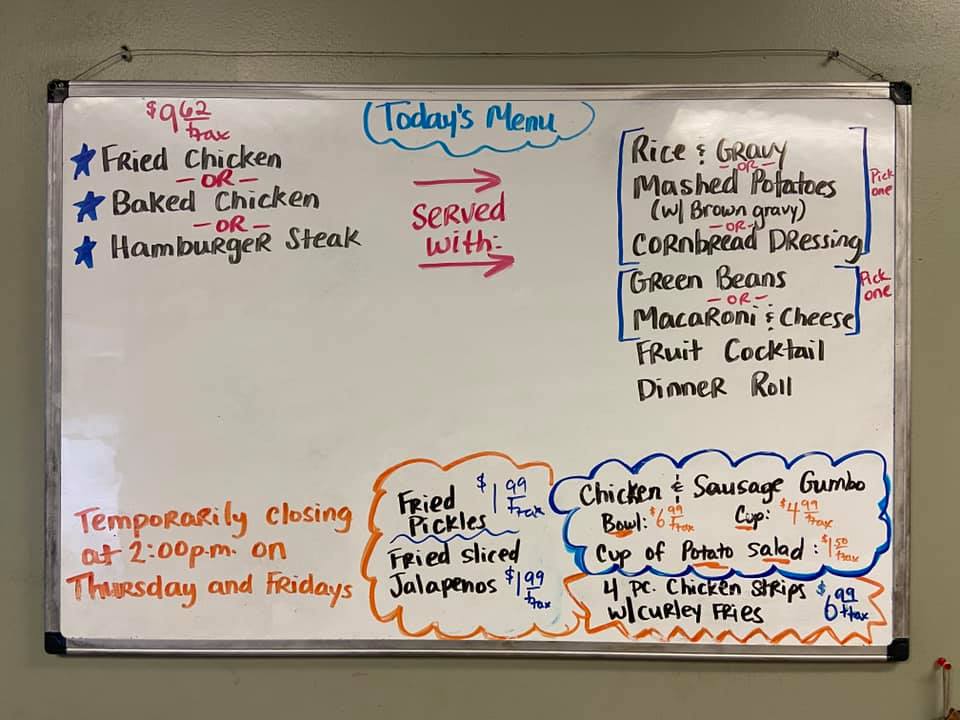 Today's Menu
$9.62
+tax
Fried Chicken
- OR -
Baked Chicken
- OR -
Hamburger Steak
Served
with:
Rice & Gravy
- OR -
Mashed Potatoes
(w/ Brown gravy)
- OR -
Cornbread Dressing
Pick
one
Green Beans
- OR -
Macaroni & Cheese
Pick
one
Fruit Cocktail
Dinner Roll
Temporarily closing
at 2:00p.m. on
Thursday and Fridays
Fried $1.99
Pickles +tax
Fried sliced
Jalapenos $1.99
+tax
Chicken & Sausage Gumbo
Bowl: $6.99 +tax Cup: $4.99 +tax
Cup of Potato Salad: $1.50 +tax
4 pc. Chicken Strips $6.99
w/curley Fries +tax